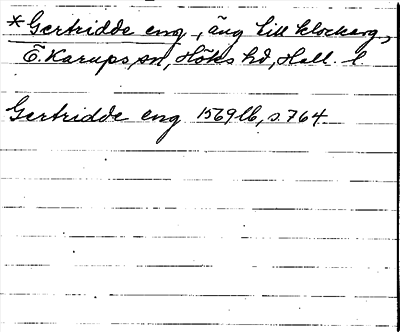 *Gertridde eng, äng till klockarg,
Ö. Karups sn, Höks hd, Hall. l
Gertridde eng 1569 lb, s. 764